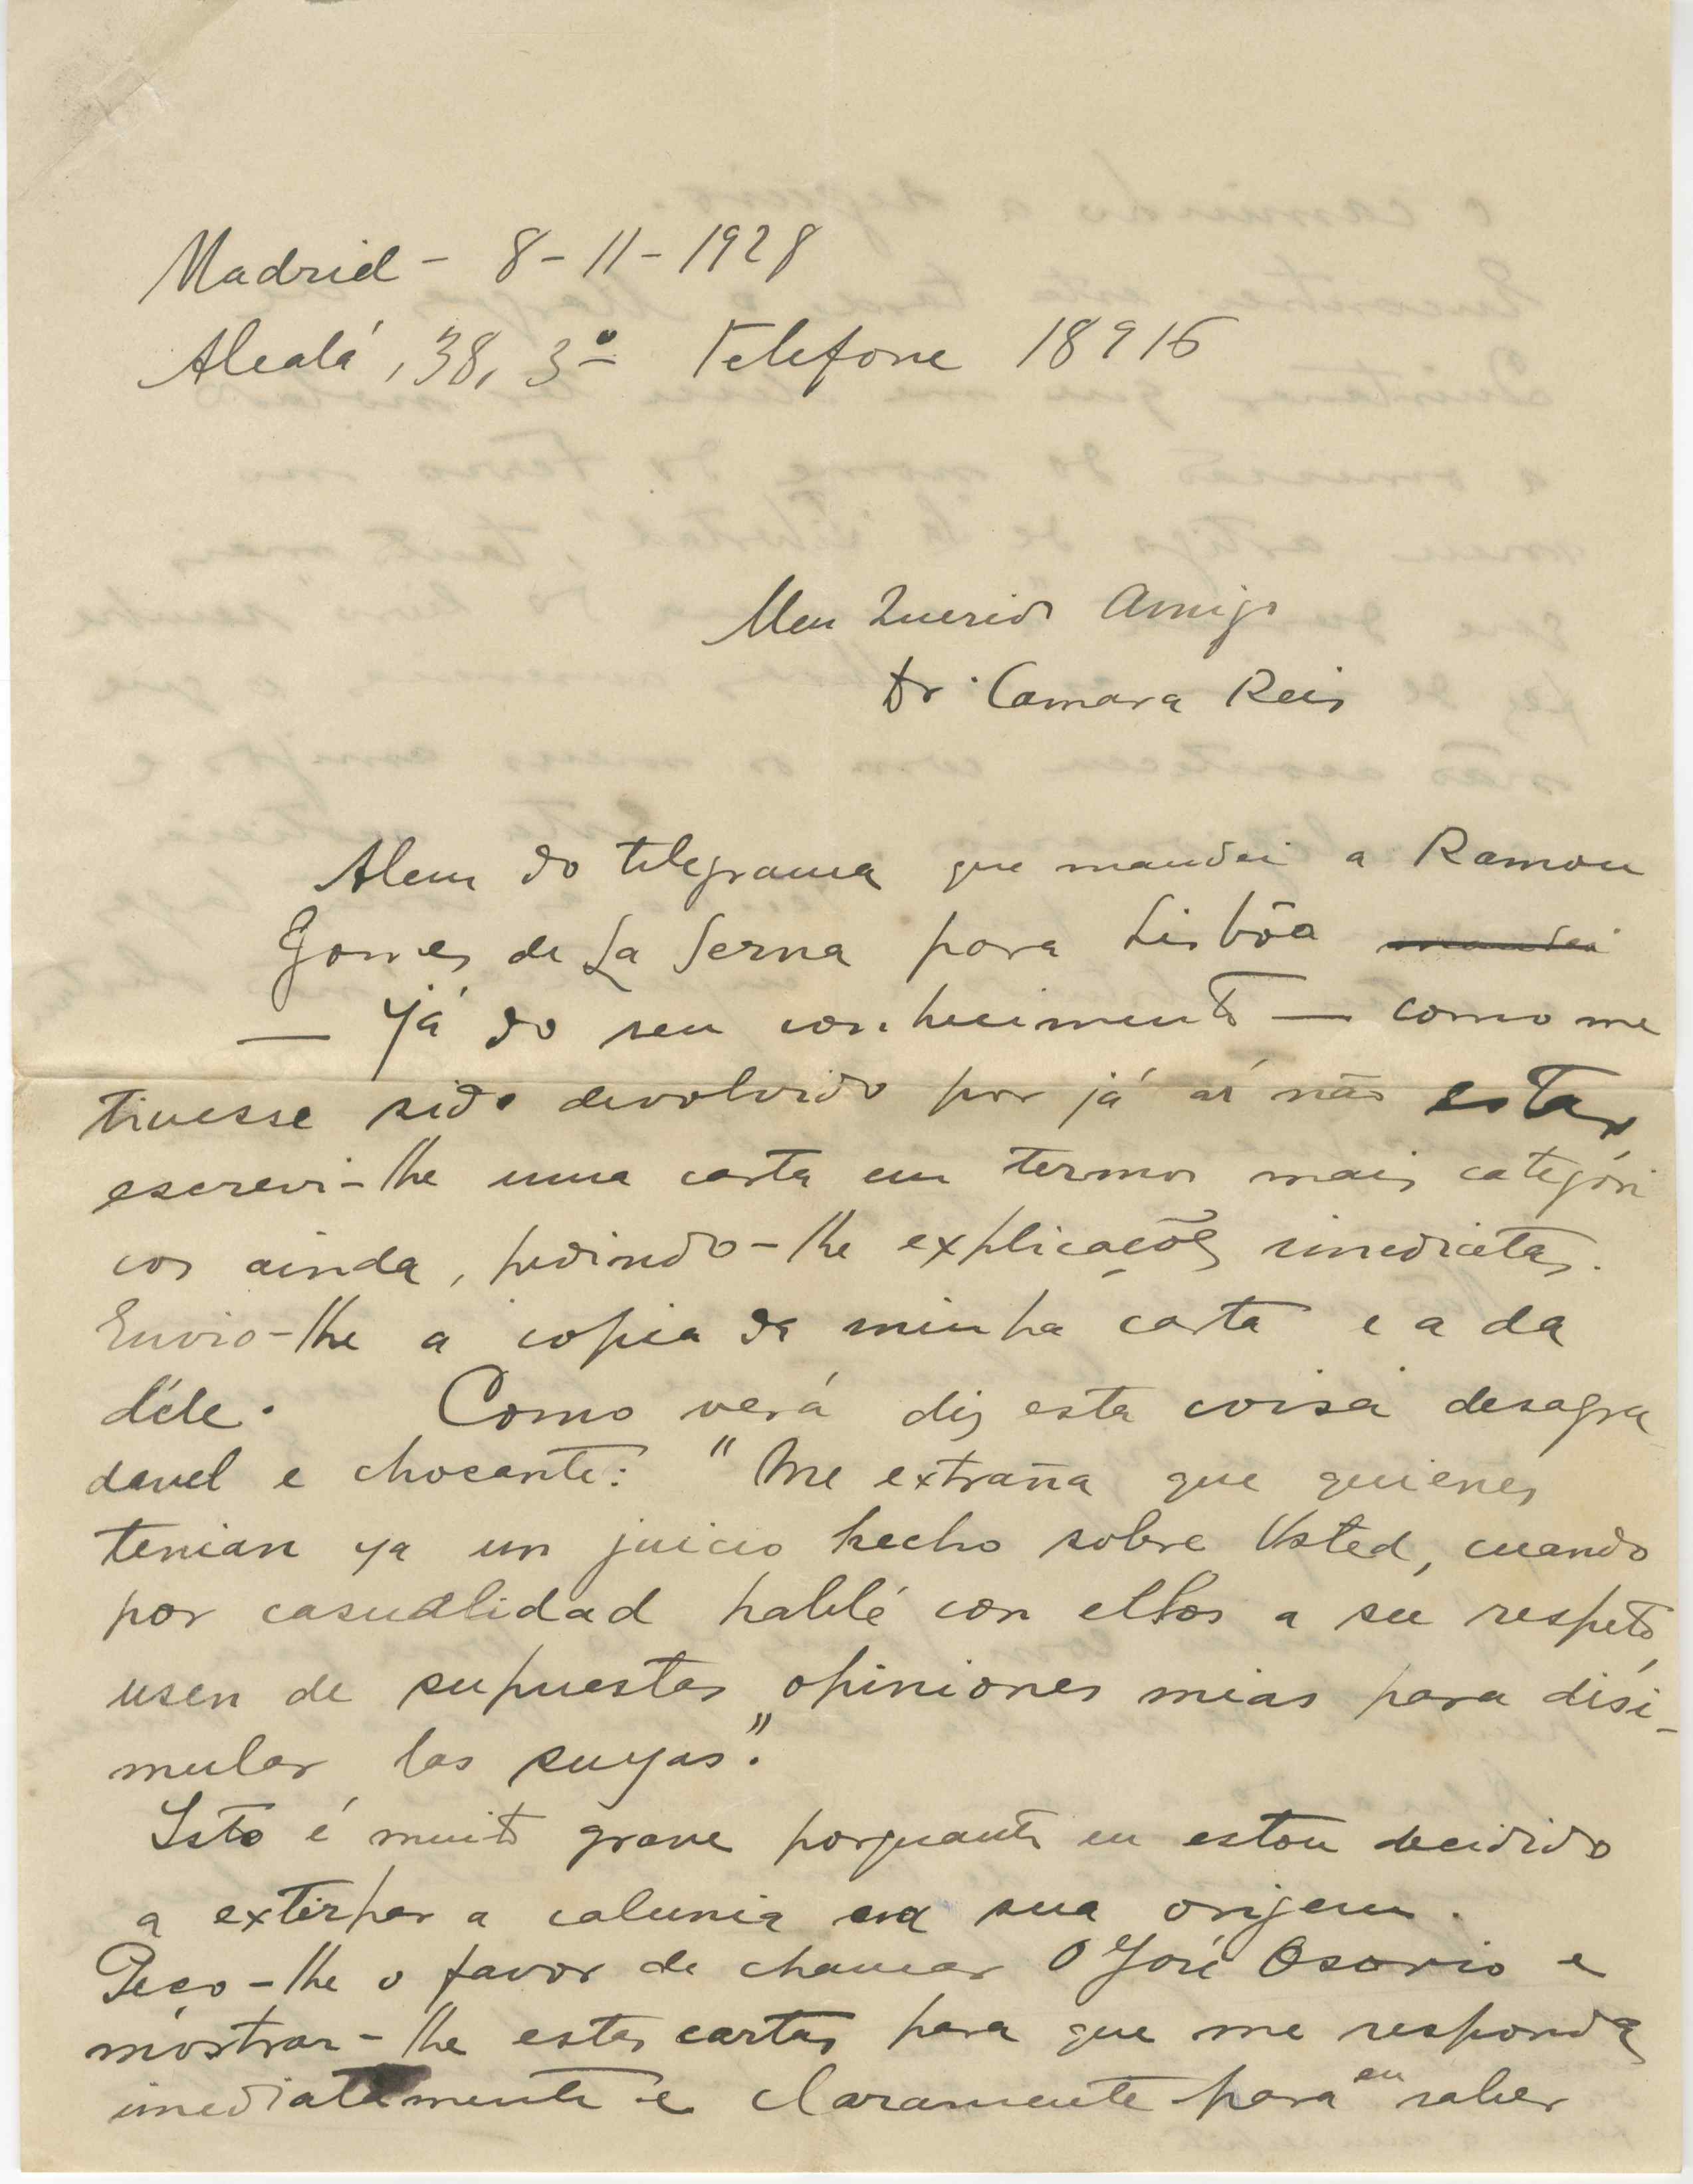 Madrid - 8-11-1928
Alcalá, 38, 3º Telefone 18916
Meu Querido Amigo
Dr. Camara Reis
Alem do telegrama que mandei a Ramon
Gomes de La Serna para Lisbôa mandei
— já do seu conhecimento — como me
tivesse sido devolvido por já aí não estar
escrevi-lhe uma carta em termos mais categóri
cos ainda, pedindo-lhe explicações imediatas.
Envio-lhe a copia da minha carta e a da
déle. Como verá diz esta coisa desagra
davel e chocante: "Me extraña que quienes
tenian ya un juicio hecho sobre Usted, cuando
por casualidad hablé con ellos a su respeto,
usen de supuestas opiniones mias para disi-
mular las suyas".
Isto é muito grave porquanto eu estou decidido
a extirpar a calunia na sua origem.
Peço-lhe o favor de chamar o José Osorio e
mostrar-lhe estas cartas para que me responda
imediatamente e claramente para eu saber